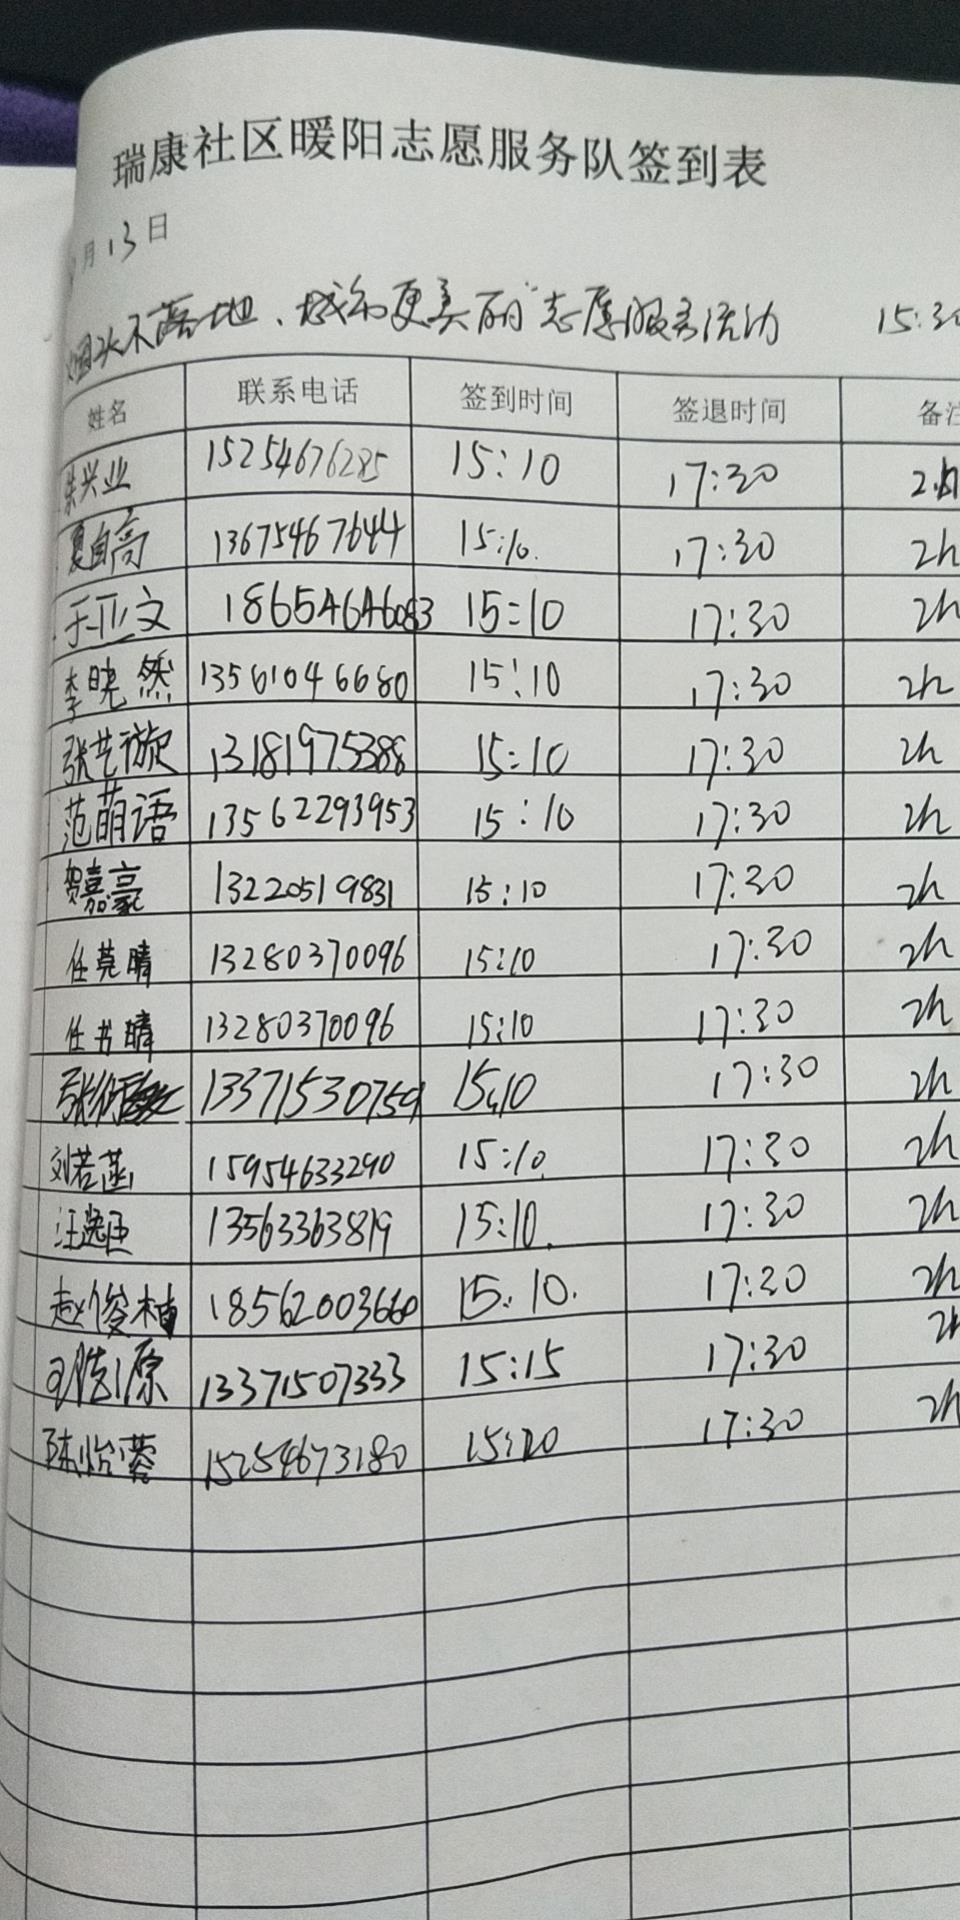 瑞康社区暖阳志愿服务队签到表
月13日
烟头不落地、城市更美丽"志愿服务活动 15:30
姓名 联系电话 签到时间 签退时间 备注
朱兴业 15254676285 15:10 17:30 2h
夏自高 13675467644 15:10. 17:30 2h
于亚文 18654646083 15:10 17:30 2h
李晓然 13561046680 15:10 17:30 2h
张艺漩 13181975388 15:10 17:30 2h
范萌语 13562293953 15:10 17:30 2h
贺嘉豪 13220519831 15:10 17:30 2h
任莞晴 13280370096 15:10 17:30 2h
任书晴 13280370096 15:10 17:30 2h
13371530759 15:10 17:30 2h
刘若菡 15954633290 15:10. 17:30 2h
汪 13563363819 15:10. 17:30 2h
赵俊楠 18562003660 15:10. 17:30 2h
原 13371507333 15:15 17:30 2h
陈怡蓉 15254673180 15:20 17:30 2h